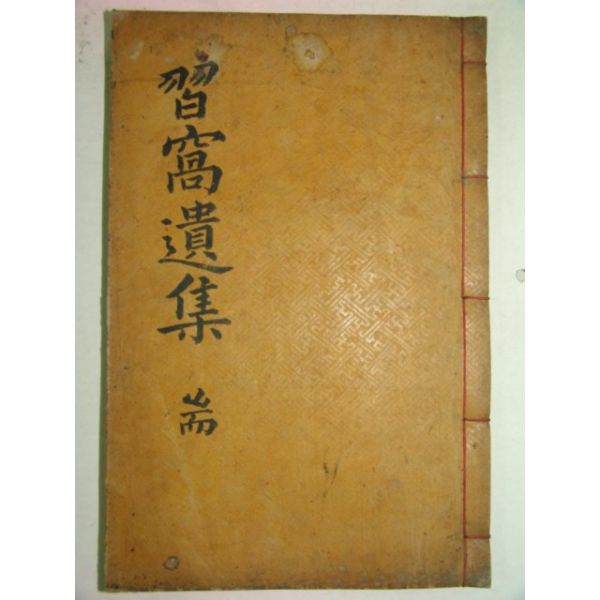 習窩遺集
耑